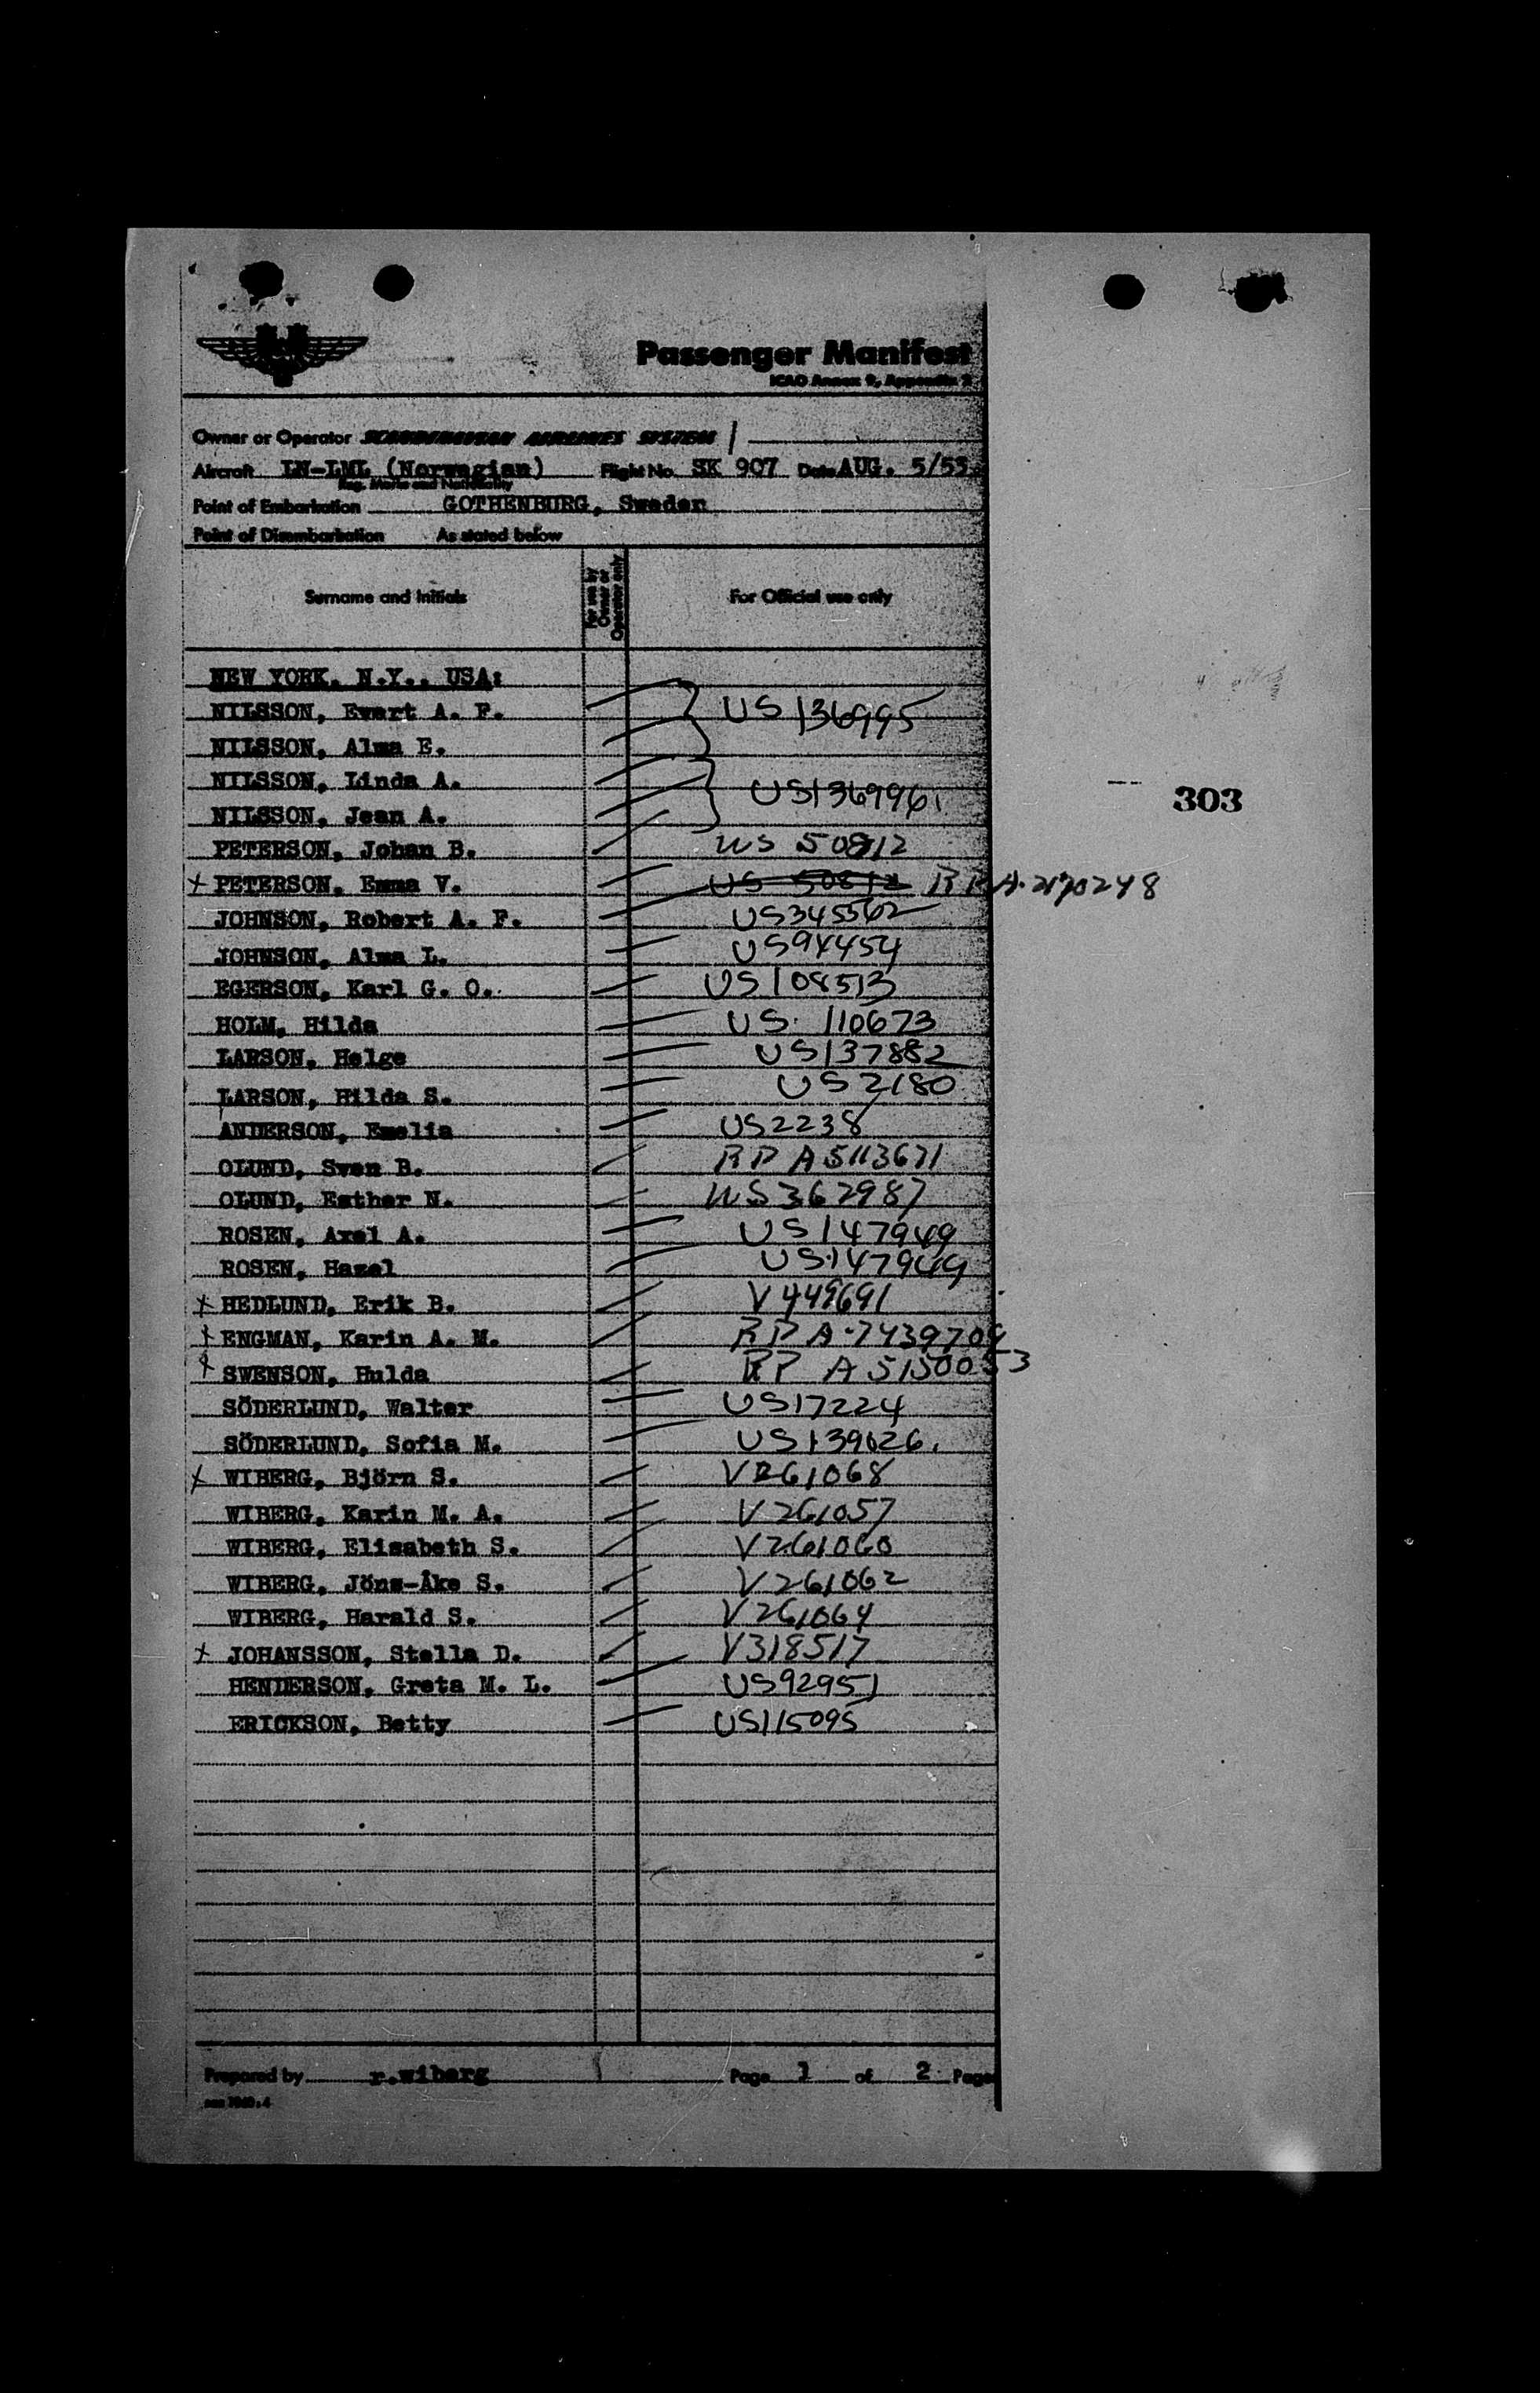 Passenger Manifest
ICAO Annex 9, Appendix 2
Owner or Operator SCANDINAVIAN AIRLINES SYSTEM
Aircraft LN-LML (Norwegian) Flight No. SK 907 Date AUG. 5/53
Reg. Marks and Nationality
Point of Embarkation GOTHENBURG, Sweden
Point of Disembarkation As stated below
Surname and Initials For use by Owner or Operator only For Official use only
NEW YORK, N.Y., USA:
NILSSON, Ewert A. F. US 136995
NILSSON, Alma E.
NILSSON, Linda A. US136996
NILSSON, Jean A.
303
PETERSON, Johan B. US 50812
x PETERSON, Emma V. US 50812 RP A.2170248
JOHNSON, Robert A. F. US345562
JOHNSON, Alma L. US94454
EGERSON, Karl G. O. US108513
HOLM, Hilda US. 110673
LARSON, Helge US137882
LARSON, Hilda S. US2180
ANDERSON, Emelia US2238
OLUND, Sven B. RP A5113671
OLUND, Esther N. US362987
ROSEN, Axel A. US147949
ROSEN, Hazel US147949
x HEDLUND, Erik B. V449691
x ENGMAN, Karin A. M. RP A-7439704
x SWENSON, Hulda RP A5150053
SÖDERLUND, Walter US17224
SÖDERLUND, Sofia M. US139026
x WIBERG, Björn S. V261068
WIBERG, Karin M. A. V261057
WIBERG, Elisabeth S. V261060
WIBERG, Jöns-Åke S. V261062
WIBERG, Harald S. V261064
x JOHANSSON, Stella D. V318517
HENDERSON, Greta M. L. US92951
ERICKSON, Betty US115095
Prepared by r.wiberg Page 1 of 2 Page